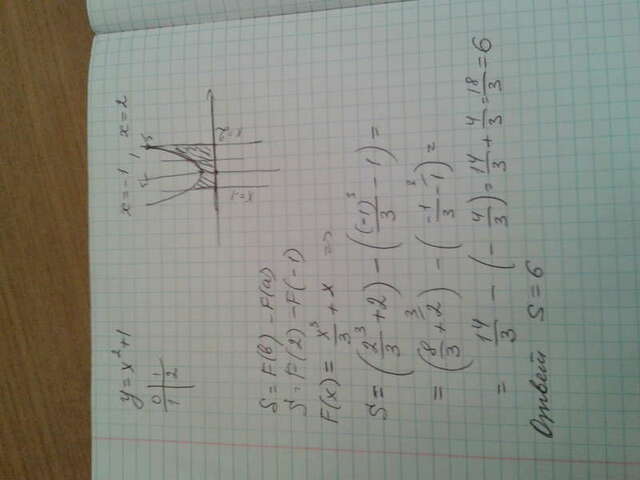 y = x² + 1   x = -1, x = 2
0 | 1
1 | 2
x=-1
x=2
S = F(b) - F(a)
S = F(2) - F(-1)
F(x) = x³/3 + x ⇒
S = (2³/3 + 2) - ((-1)³/3 - 1) =
= (8/3 + 2) - (-1/3 - 1) =
= 14/3 - (-4/3) = 14/3 + 4/3 = 18/3 = 6
Ответ S = 6